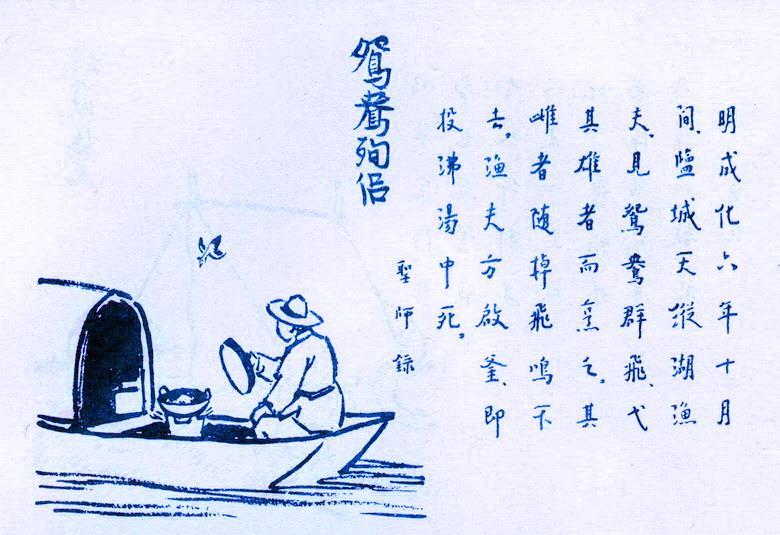 鴛鴦殉侶
明成化六年十月
間、鹽城天縱湖漁
夫、見鴛鴦群飛、弋
其雄者而烹之。其
雌者随掉飛鳴不
去。漁夫方啟釜、即
投沸湯中死。
聖師錄